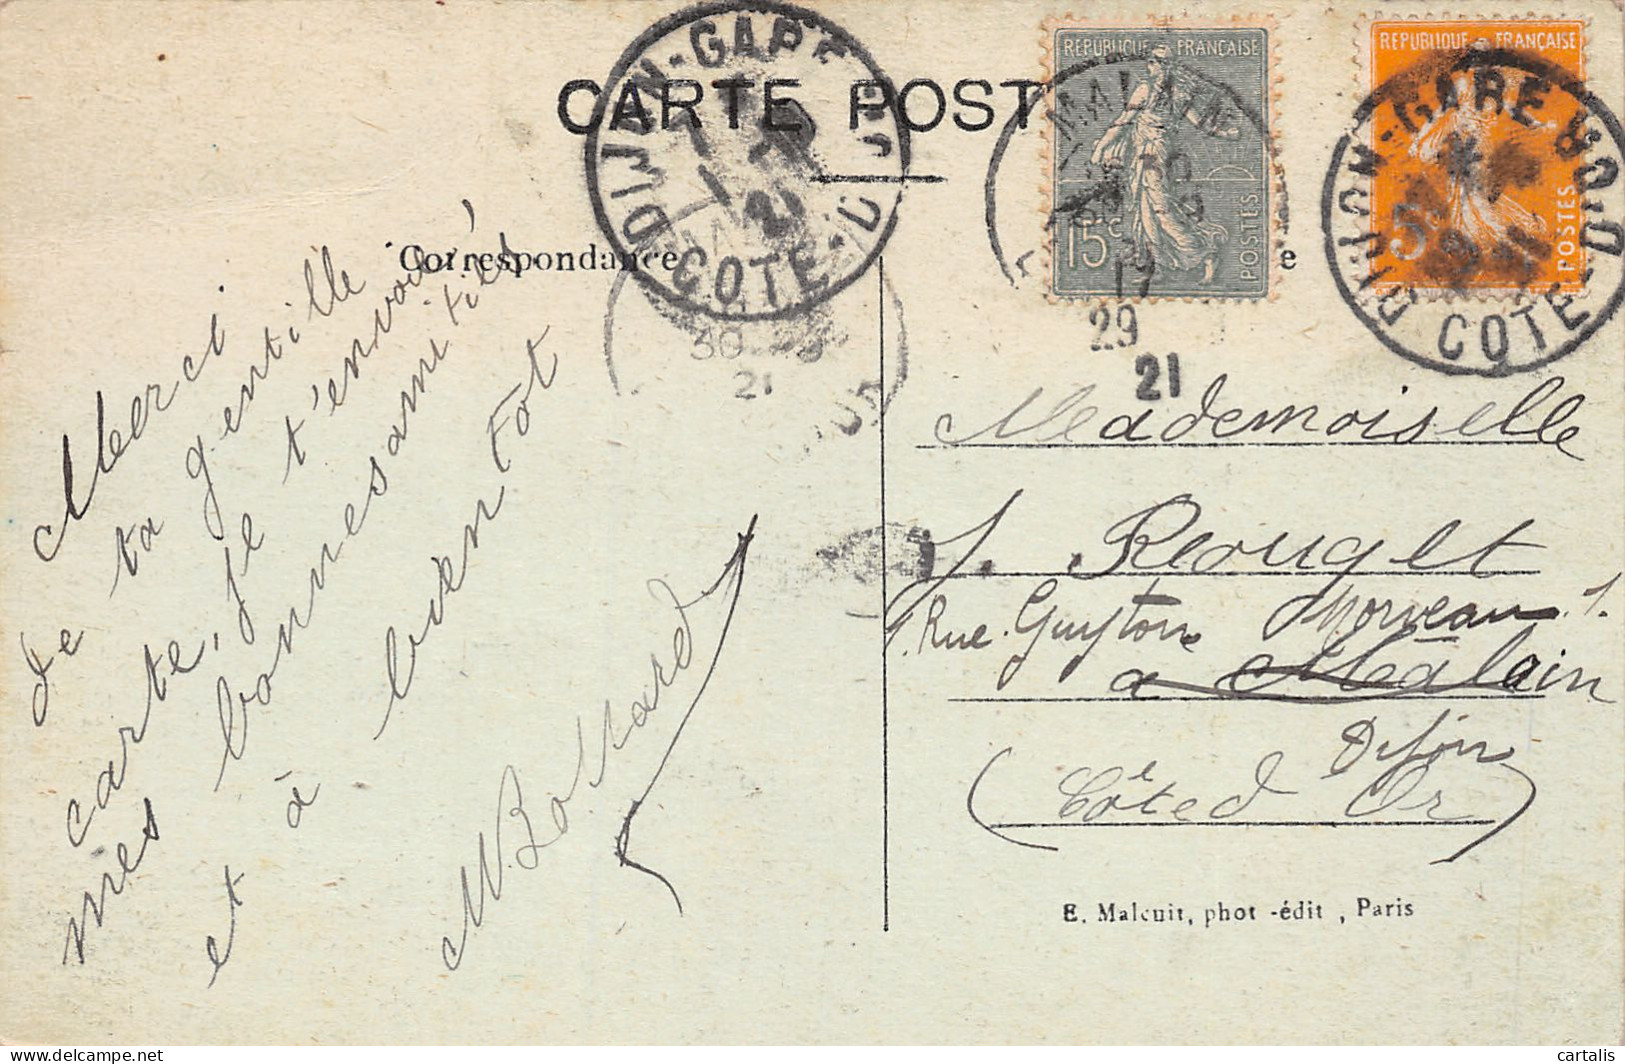 CARTE POST
Correspondance
e
REPUBLIQUE FRANÇAISE
15c
POSTES
REPUBLIQUE FRANÇAISE
5c
POSTES
DIJON-GARE
COTE-D'OR
21
MALAIN
29
21
DIJON-GARE
COTE-D'OR
30
21
Merci
de ta gentille
carte, je t'envoie
mes bonnes amitiés
et à bientot
M Bollard
Mademoiselle
J. Rouget
1. Rue Guyton Morveau. 1.
a Malain
Dijon
(Côte d Or)
E. Malcuit, phot-édit, Paris
delcampe.net
cartalis